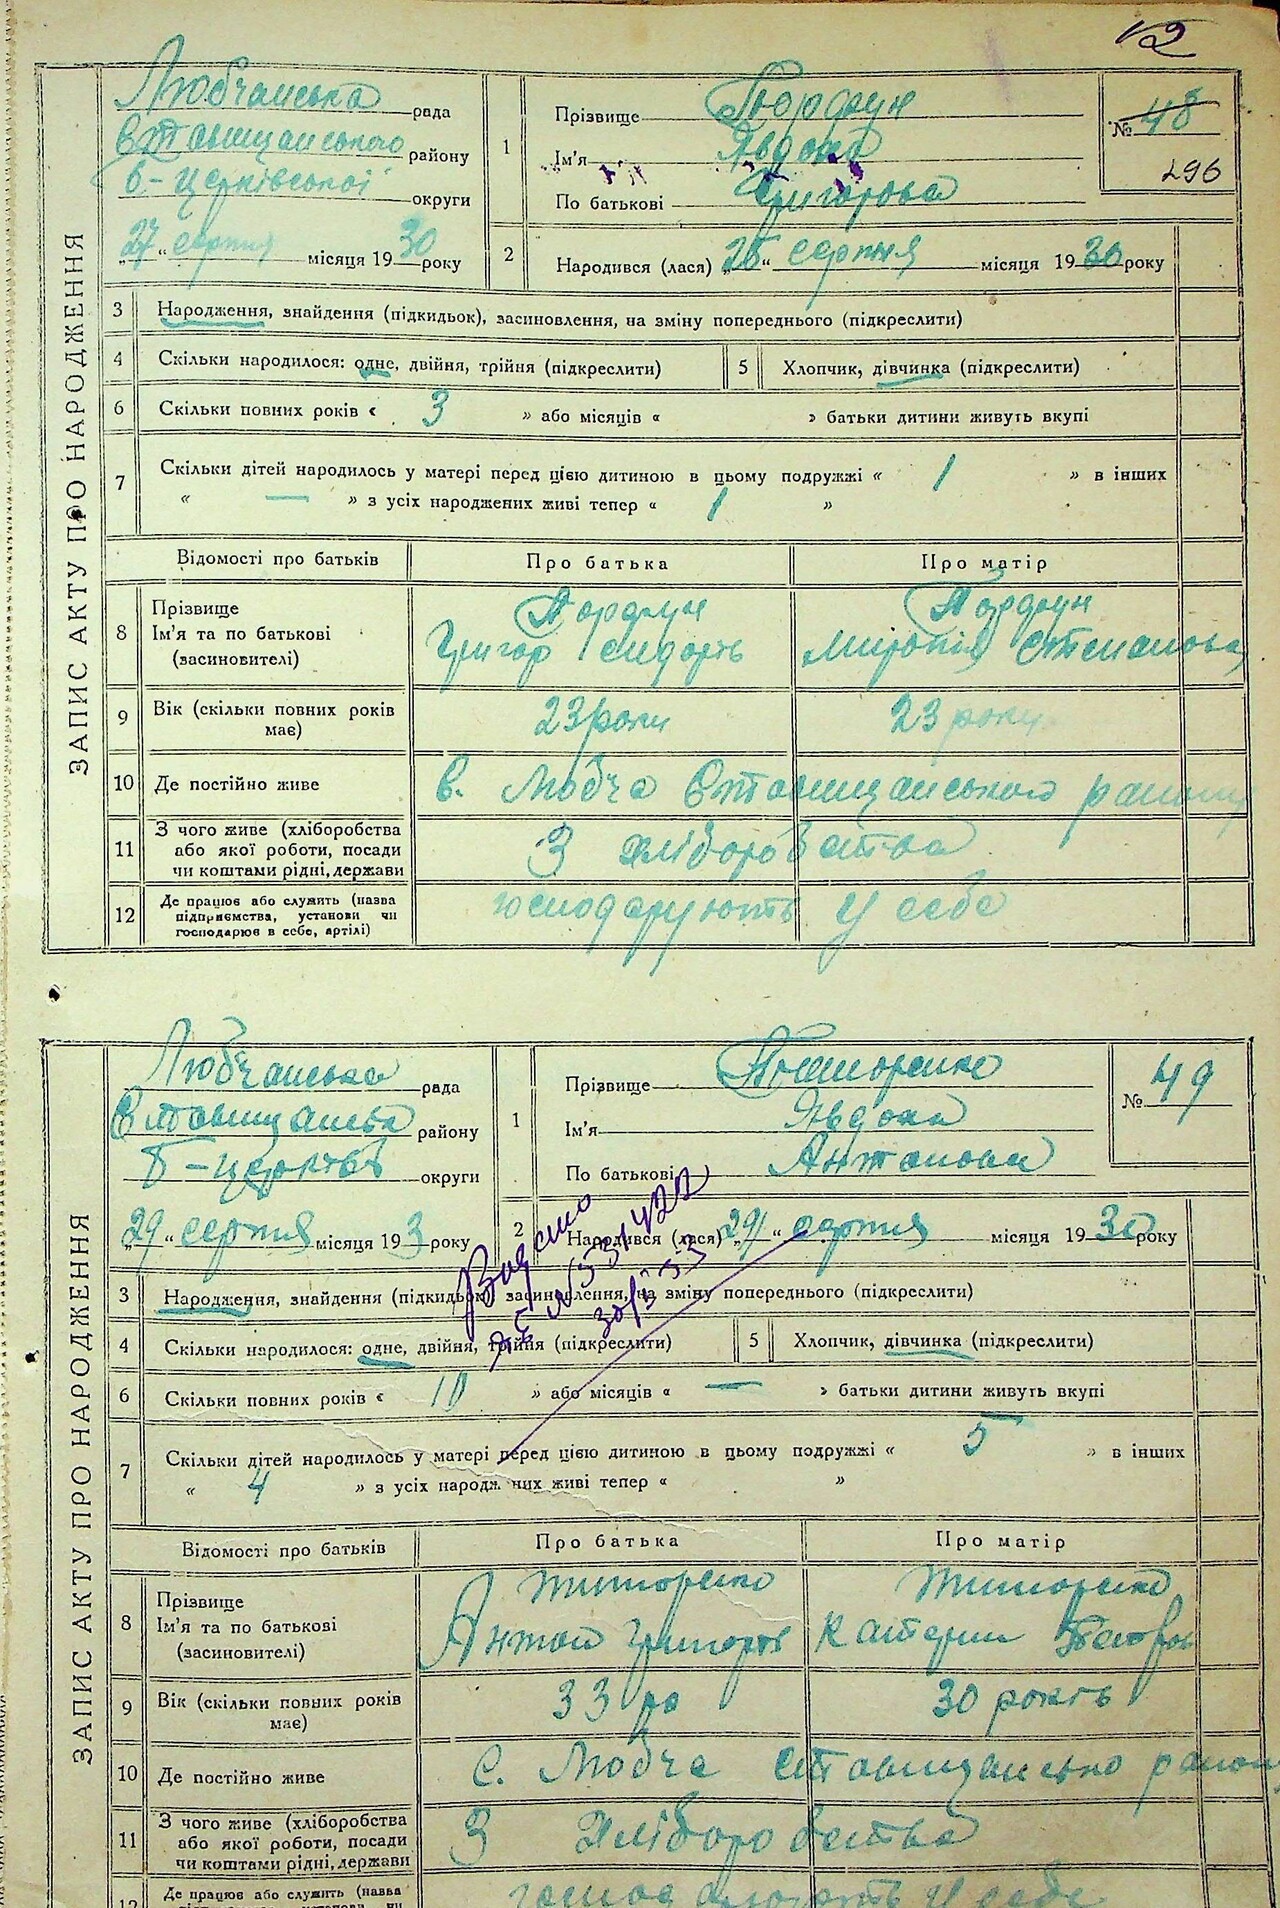 12
ЗАПИС АКТУ ПРО НАРОДЖЕННЯ
Любчанська рада
Ставищанського району
Б-Церківської округи
„27“ серпня місяця 1930 року
1
Прізвище Гордзун
Ім'я Явдоха
По батькові Григорова
№ 48
296
2 Народився (лася) „25“ серпня місяця 1930 року
3 Народження, знайдення (підкидьок), засиновлення, на зміну попереднього (підкреслити)
4 Скільки народилося: одне, двійня, трійня (підкреслити) 5 Хлопчик, дівчинка (підкреслити)
6 Скільки повних років « 3 » або місяців « » батьки дитини живуть вкупі
7 Скільки дітей народилось у матері перед цією дитиною в цьому подружжі « 1 » в інших
« — » з усіх народжених живі тепер « 1 »
Відомості про батьків Про батька Про матір
8 Прізвище
Ім'я та по батькові
(засиновителі)
Григор Сидорів
Степанова
9 Вік (скільки повних років має) 23 роки 23 роки
10 Де постійно живе с. Любча Ставищанського району
11 З чого живе (хліборобства або якої роботи, посади чи коштами рідні, держави З хліборобства
12 Де працює або служить (назва підприємства, установи чи господарює в себе, артілі) господарують у себе
ЗАПИС АКТУ ПРО НАРОДЖЕННЯ
Любчанська рада
Ставищанська району
Б-Церків округи
„29“ серпня місяця 193 року
1
Прізвище Тиморенко
Ім'я Явдоха
По батькові Антонова
№ 49
2 Народився (лася) „29“ серпня місяця 1930 року
Видано
№ 331422
3 Народження, знайдення (підкидьок), засиновлення, на зміну попереднього (підкреслити)
4 Скільки народилося: одне, двійня, трійня (підкреслити) 5 Хлопчик, дівчинка (підкреслити)
6 Скільки повних років « 10 » або місяців « — » батьки дитини живуть вкупі
7 Скільки дітей народилось у матері перед цією дитиною в цьому подружжі « 5 » в інших
« 4 » з усіх народжених живі тепер « »
Відомості про батьків Про батька Про матір
8 Прізвище
Ім'я та по батькові
(засиновителі)
Тиморенко Тиморенко
Антон Григорів Катерин Петров
9 Вік (скільки повних років має) 33 ро 30 років
10 Де постійно живе с. Любча Ставищансько району
11 З чого живе (хліборобства або якої роботи, посади чи коштами рідні, держави З хліборобства
12 Де працює або служить (назва господарюють у себе